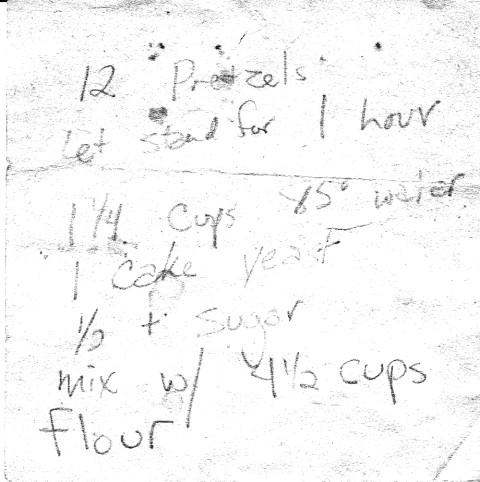 12 Pretzels
Let stand for 1 hour
1 1/4 cups 85° water
1 cake yeast
1/2 t sugar
mix w/ 4 1/2 cups
flour